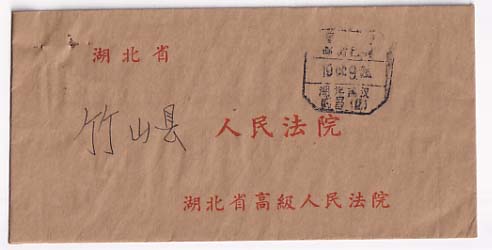 湖北省
湖北武汉
竹山县 人民法院
湖北省高級人民法院